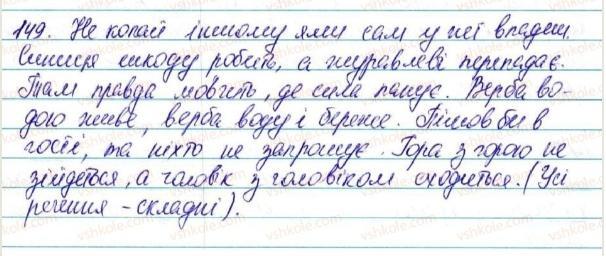 149. Не копай іншому ями сам у неї впадеш.
Синиця шкоду робить, а журавлеві перепадає.
Там правда мовчить, де сила панує. Верба во-
дою живе, верба воду і береже. Пішов би в
гості, та ніхто не запрошує. Гора з горою не
зійдеться, а чоловік з чоловіком сходиться. (Усі
речення - складні).